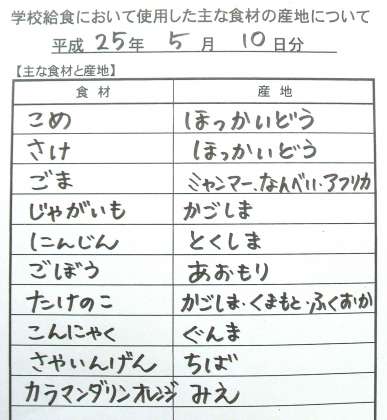 学校給食において使用した主な食材の産地について
平成 25年 5月 10日分
【主な食材と産地】
食材 産地
こめ ほっかいどう
さけ ほっかいどう
ごま ミャンマー、なんべい・アフリカ
じゃがいも かごしま
にんじん とくしま
ごぼう あおもり
たけのこ かごしま・くまもと・ふくおか
こんにゃく ぐんま
さやいんげん ちば
カラマンダリンオレンジ みえ